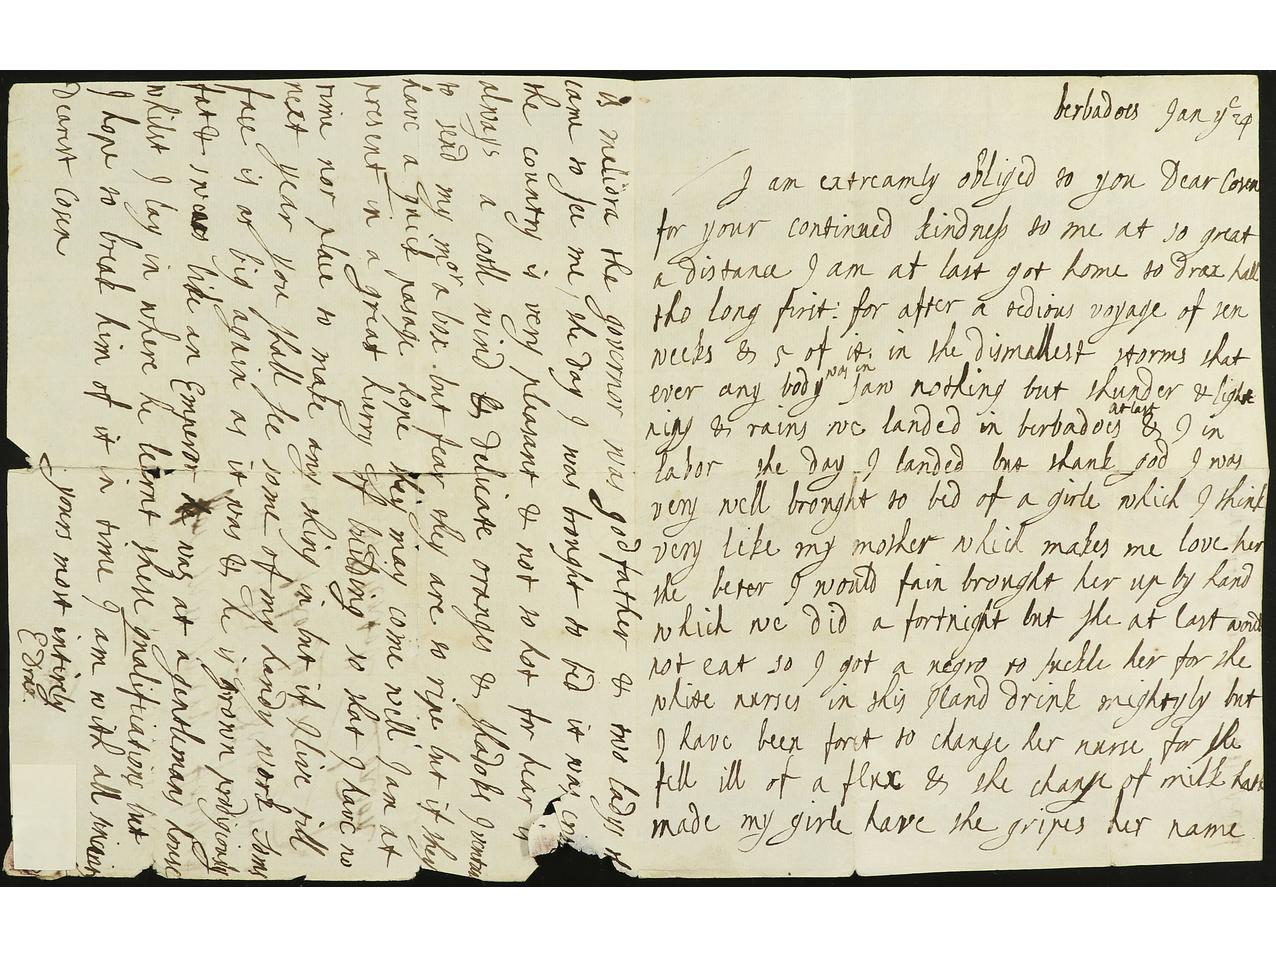 berbadoes Jan yᵉ 24
I am extreamly obliged to you Dear Cosen
for your continued kindness to me at so great
a distance I am at last got home to drax hall
tho long first: for after a tedious voyage of ten
weeks & 5 of it in the dismallest storms that
ever any body was in saw nothing but thunder & light
ning & rains we landed in berbadoes at last & I in
labor the day I landed but thank god I was
very well brought to bed of a girle which I think
very like my mother which makes me love her
the beter I would fain brought her up by hand
which we did a fortnight but she at last would
not eat so I got a negro to suckle her for the
white nurses in this Iland drink mightyly but
I have been forct to change her nurse for she
fell ill of a flux & the change of milk hath
made my girle have the gripes her name
is meliora the governor was godfather & two ladys
came to see me the day I was brought to bed it was
the country is very pleasant & not so hot for hear is
always a coole wind & delicate oranges & shadoks I
to send my moʳ a box but fear they are to ripe but if they
have a quick pasage I hope they may come well I an at
present in a great hurry of bulding so that I have no
time nor place to make any thing in but if I live till
next year you shall see some of my handy work
face is as big again as it was & he is grown prodigously
fat & like an Emperor was at a gentlemans house
whilst I lay in where he lernt these qualifications but
I hope to break him of it in time I am with all
Dearest Cosen
yours most intirely
E Drax